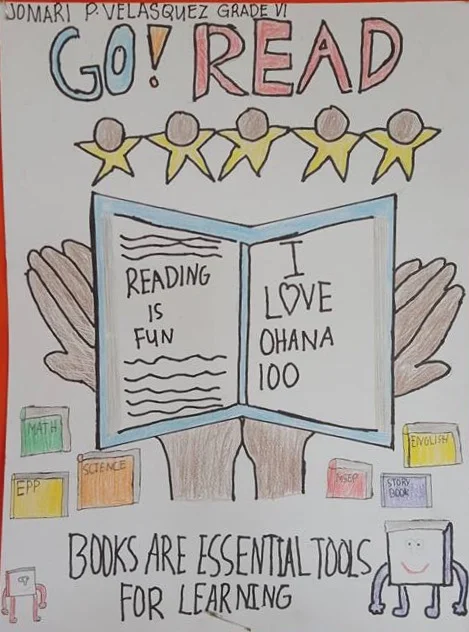 JOMARI P. VELASQUEZ GRADE VI
GO! READ
READING
IS
FUN
I
LOVE
OHANA
100
MATH
EPP
SCIENCE
MSEP
STORY
BOOK
ENGLISH
BOOKS ARE ESSENTIAL TOOLS
FOR LEARNING